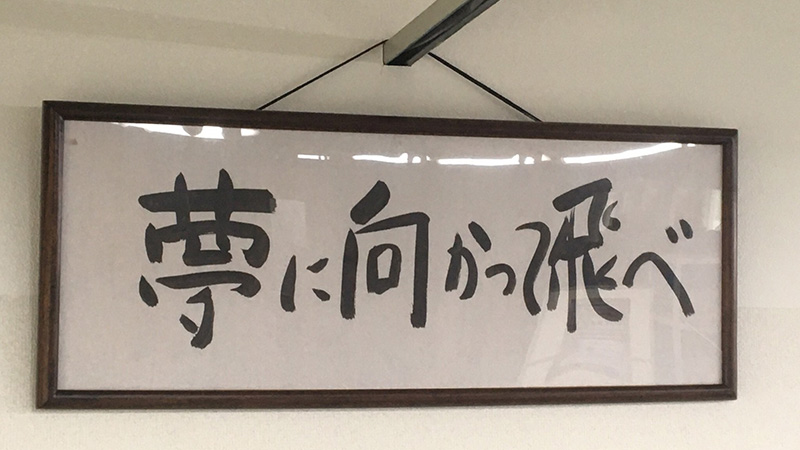 夢に向かって飛べ